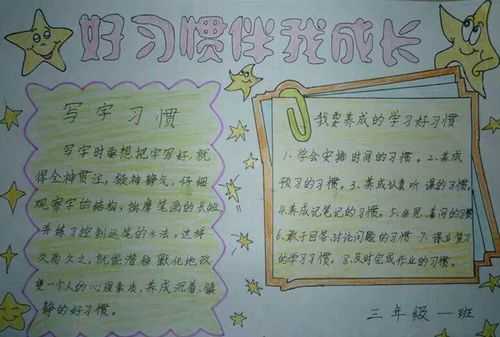 好习惯伴我成长
写字习惯
写字时要想把字写好,就
得全神贯注,凝神静气,仔细
观察字的结构,揣摩笔画的长短
并练习控制运笔的方法。这样
久而久之,就能潜移默化地改
变一个人的心理素质,养成沉着、镇
静的好习惯。
我要养成的学习好习惯
1.学会安排时间的习惯。2.养成
预习的习惯。3.养成认真听课的习惯。
4.养成记笔记的习惯。5.多思善问的习惯
6.敢于回答,讨论问题的习惯 7.课后复习
的学习习惯。8.及时完成作业的习惯。
三年级一班